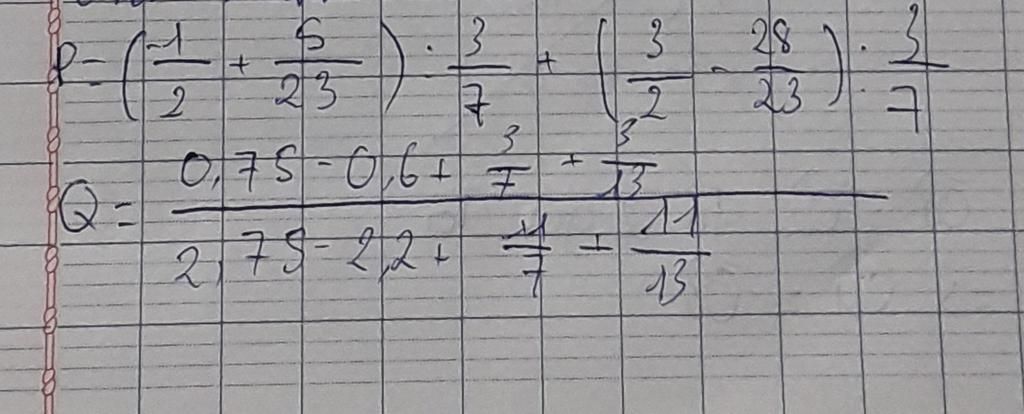 P = (-1/2 + 5/23) : 3/7 + (3/2 - 28/23) : 3/7
Q = (0,75 - 0,6 + 3/7 + 3/13) / (2,75 - 2,2 + 11/7 + 11/13)